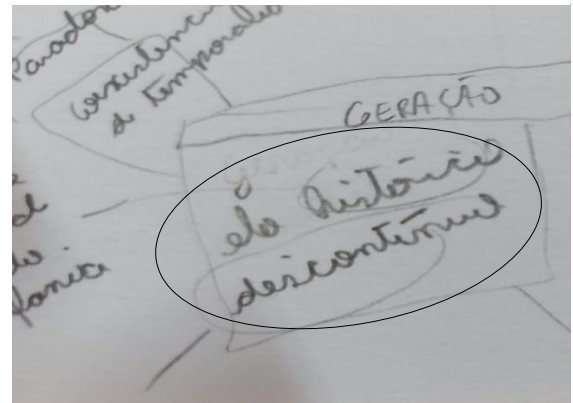 Paradox
coexistênci
d temporalid
GERAÇÃO
geração
elo histórico
descontínuo